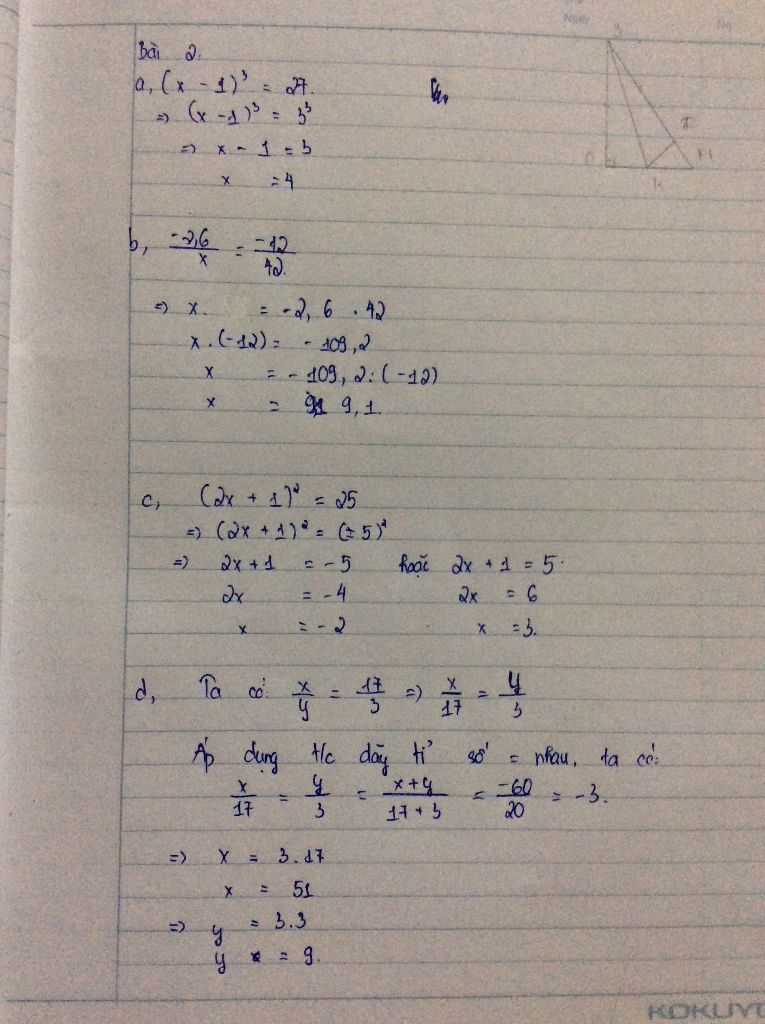 Bài 2.
a, (x - 1)³ = 27.
=> (x - 1)³ = 3³
=> x - 1 = 3
x = 4
b, -2,6/x = -12/42.
=> x. = -2,6 . 42
x . (-12) = - 109,2
x = - 109,2 : (-12)
x = 9,1.
c, (2x + 1)² = 25
=> (2x + 1)² = (±5)²
=> 2x + 1 = -5 hoặc 2x + 1 = 5.
2x = -4 2x = 6
x = -2 x = 3.
d, Ta có: x/y = 17/3 => x/17 = y/3
Áp dụng t/c dãy tỉ số = nhau, ta có:
x/17 = y/3 = x+y/17+3 = -60/20 = -3.
=> x = 3.17
x = 51
=> y = 3.3
y = 9.
I
H
K
KOKUYO